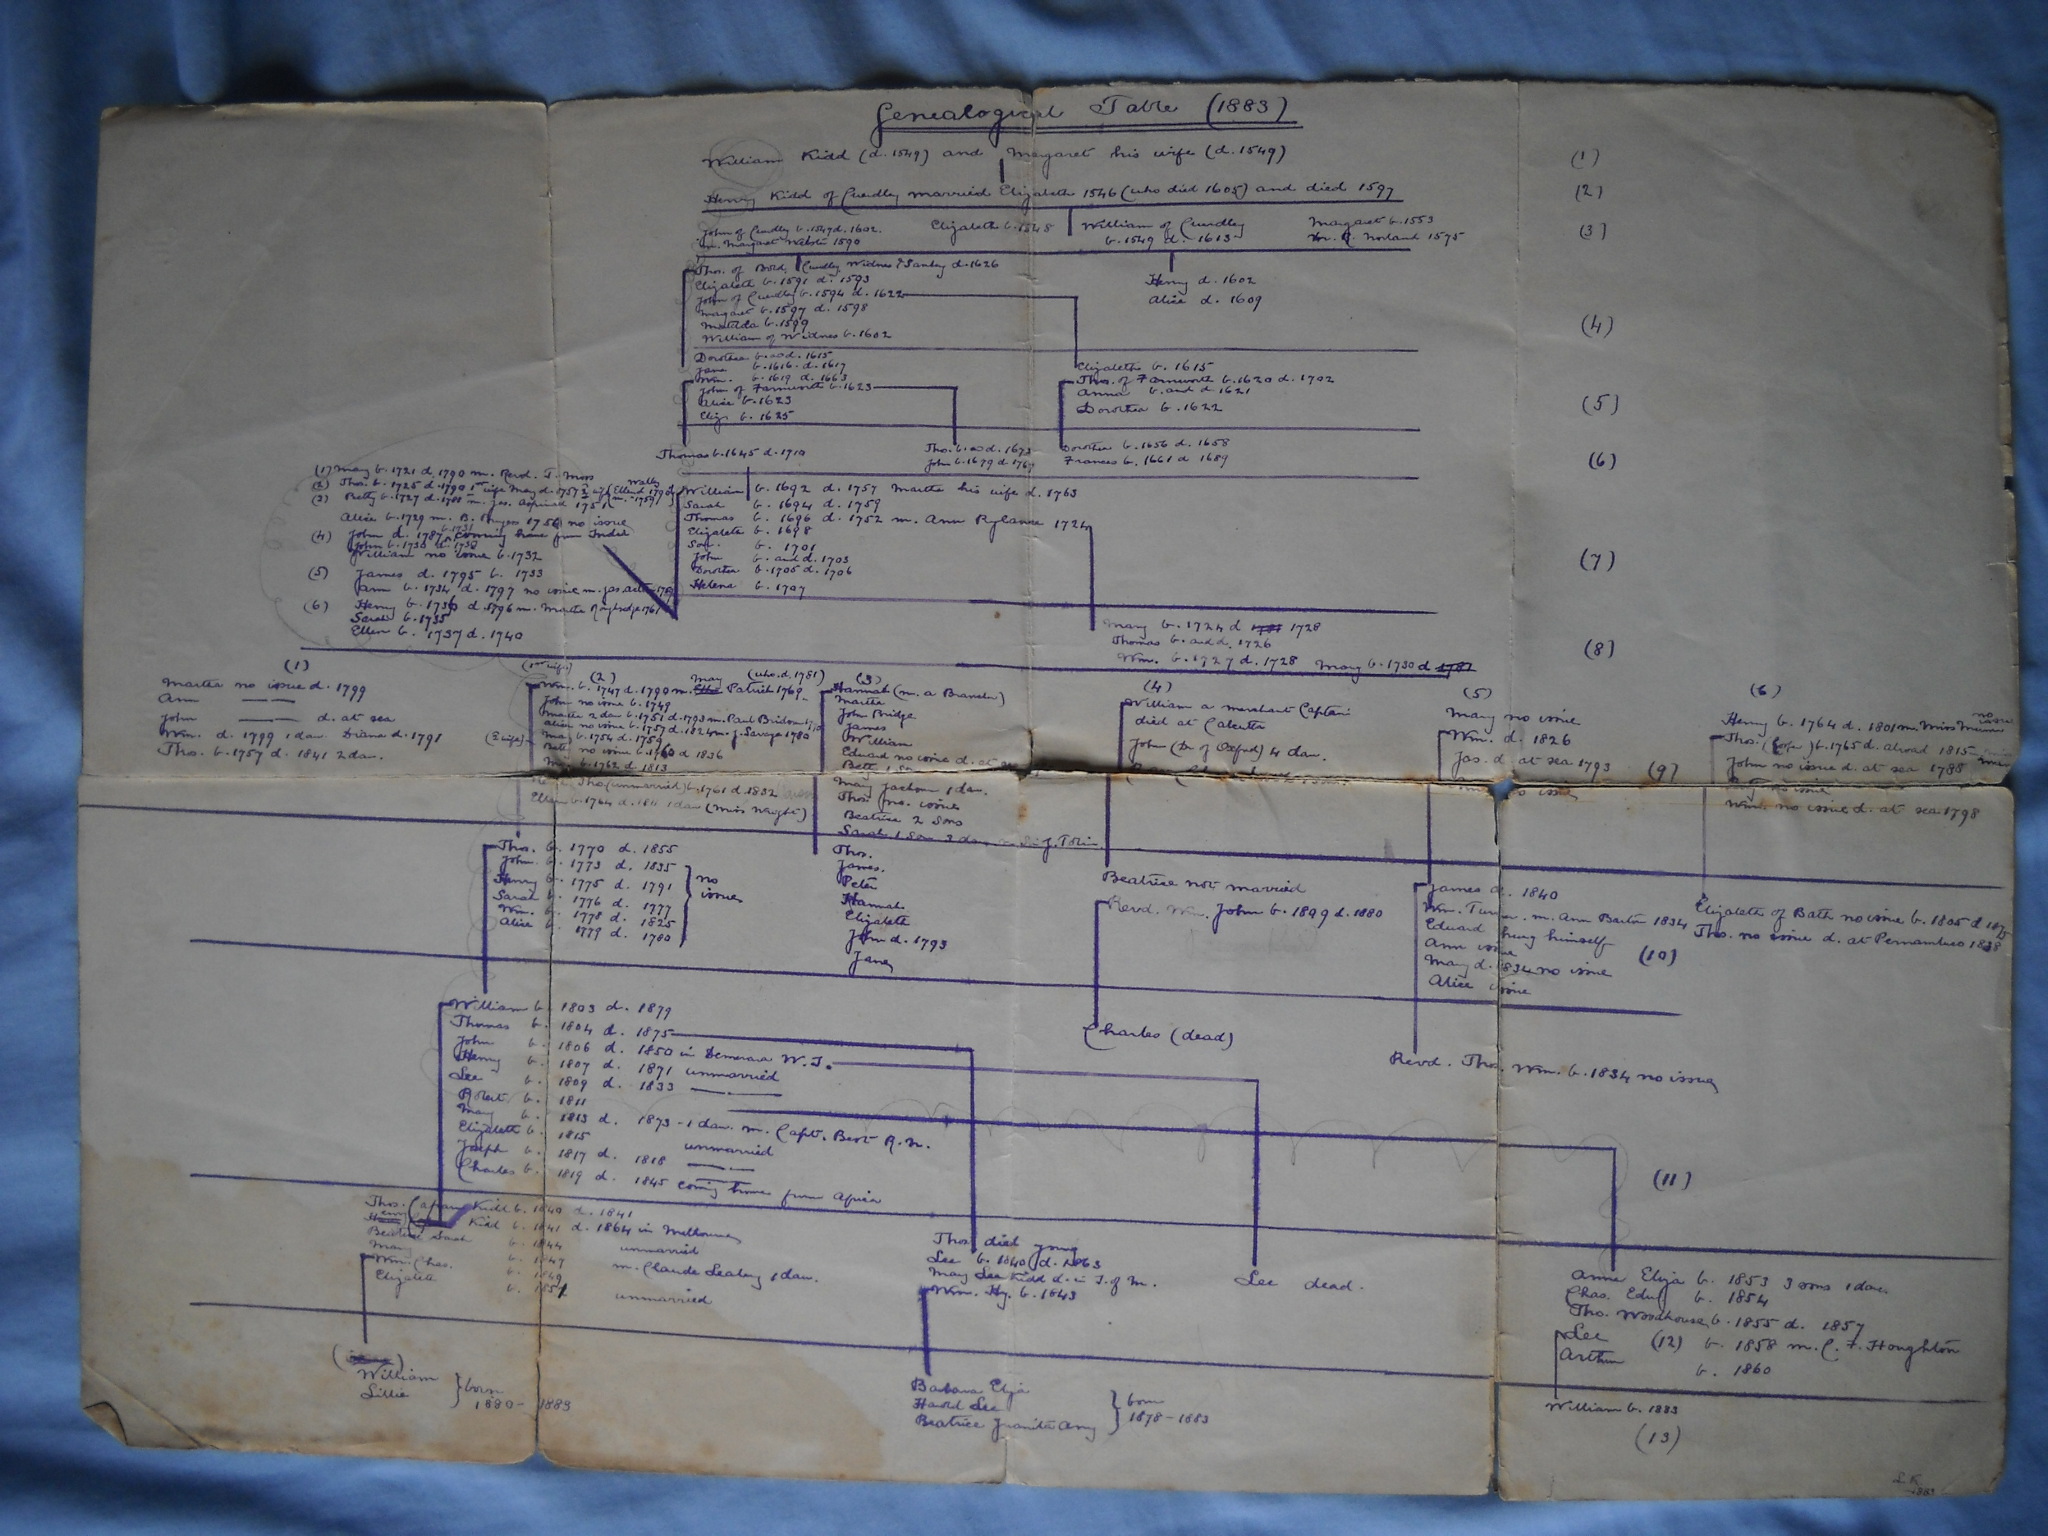 Genealogical Table (1883)
William Kidd (d. 1549) and Margaret his wife (d. 1549) (1)
Henry Kidd of Cuerdley married Elizabeth 1546 (who died 1605) and died 1597 (2)
John of Cuerdley b. 1547 d. 1602.
m. Margaret Webster 1590
Elizabeth b. 1548
William of Cuerdley
b. 1549 d. 1613
Margaret b. 1553
m. R. Norland 1575
(3)
Thos. of Bold, Cuerdley Widnes & Sankey d. 1626
Elizabeth b. 1591 d. 1593
John of Cuerdley b. 1594 d. 1622
Margaret b. 1597 d. 1598
Matilda b. 1599
William of Widnes b. 1602
Henry d. 1602
Alice d. 1609
(4)
Dorothea b. and d. 1615
Jane b. 1616 d. 1617
Wm. b. 1619 d. 1663
John of Farnworth b. 1623
Alice b. 1623
Eliz. b. 1625
Elizabeth b. 1615
Thos. of Farnworth b. 1620 d. 1702
Anna b. and d. 1621
Dorothea b. 1622
(5)
Thomas b. 1645 d. 1710
Tho. b. and d. 1673
John b. 1679 d. 1767
Dorothea b. 1656 d. 1658
Frances b. 1661 d. 1689
(6)
William b. 1692 d. 1757 Martha his wife d. 1763
Sarah b. 1694 d. 1759
Thomas b. 1696 d. 1752 m. Ann Rylance 1724
Elizabeth b. 1698
Son b. 1701
John b. and d. 1703
Dorothea b. 1705 d. 1706
Helena b. 1707
(7)
(1) Mary b. 1721 d. 1790 m. Revd. T. Moss
(2) Thos. b. 1725 d. 1790 1st wife Mary d. 1757 2 wife Ellen d. 1790
m. 1759
(3) Betty b. 1727 d. 1788 m. Jas. Aspinal 1751
Alice b. 1729 m. B. 1756 no issue
(4) John d. 1787 coming home from India
John b. 1730 d. 1730
William no issue b. 1732
(5) James d. 1795 b. 1733
Ann b. 1734 d. 1797 no issue m. Jas.
(6) Henry b. 1736 d. 1796 m. Martha 1761
Sarah b. 1735
Ellen b. 1737 d. 1740
Mary b. 1724 d. 1728
Thomas b. and d. 1726
Wm. b. 1727 d. 1728 Mary b. 1730 d. 1787
(8)
(1)
Martha no issue d. 1799
Ann
John d. at sea
Wm. d. 1799 1 dau. Diana d. 1791
Thos. b. 1757 d. 1841 2 dau.
(1st wife) (2) May (who d. 1781)
Wm. b. 1747 d. 1790 m. Patrick 1769
John no issue b. 1749
Martha 2 dau b. 1751 d. 1793 m. Paul
Alice no issue b. 1757 d. 1824 m. J. Savage 1780
(2 wife) Mary b. 1754 d. 1759
Bett. no issue b. 1760 d. 1836
b. 1762 d. 1813
Tho. (unmarried) b. 1761 d. 1832
Ellen b. 1764 d. 1811 1 dau (Miss Wright)
(3)
Hannah (m. a Brancker)
Martha
John Bridge
James
William
Edward no issue d. at sea
Mary Jackson 1 dau.
Thos. no issue
Beatrice 2 sons
Sarah 1 son 3 dau. m. Sir J. Tobin
(4)
William a merchant Captain
died at Calcutta
John (Dr of Oxford) 4 dau.
(5)
Mary no issue
Wm. d. 1826
Jas. d. at sea 1793
no issue
(9)
(6)
Henry b. 1764 d. 1801 m. Miss no issue
Thos. (Capn.) b. 1765 d. abroad 1815
John no issue d. at sea 1788
no issue
Wm. no issue d. at sea 1798
Thos. b. 1770 d. 1855
John b. 1773 d. 1835
Henry b. 1775 d. 1791
Sarah b. 1776 d. 1777
Wm. b. 1778 d. 1825
Alice b. 1779 d. 1780
no
issue
Thos.
James.
Peter
Hannah
Elizabeth
John d. 1793
Jane
Beatrice not married
Revd. Wm. John b. 1899 d. 1880
James d. 1840
Wm. Turner. m. Ann Barton 1834
Edward hung himself
Ann issue
Mary d. 1834 no issue
Alice issue
(10)
Elizabeth of Bath no issue b. 1805 d. 1875
Tho. no issue d. at Pernambuco 1838
William b. 1803 d. 1879
Thomas b. 1804 d. 1875
John b. 1806 d. 1850 in Demerara W. I.
Henry b. 1807 d. 1871 unmarried
Lee b. 1809 d. 1833
Robert b. 1811
Mary b. 1813 d. 1873 - 1 dau. m. Capt. Bent R. N.
Elizabeth b. 1815 unmarried
Joseph b. 1817 d. 1818
Charles b. 1819 d. 1845 coming home from Africa
Charles (dead)
Revd. Thos. Wm. b. 1834 no issue
(11)
Thos. Kidd b. 1840 d. 1841
Henry Kidd b. 1841 d. 1864 in Melbourne
Beatrice Sarah b. 1844 unmarried
Mary b. 1847 m. Claude Leabey 1 dau.
Wm. Chas. b. 1849
Elizabeth b. 1851 unmarried
Thos. died young
Lee b. 1840 d. 1863
Mary Lee Kidd d. in I. of M.
Wm. Hy. b. 1843
Lee dead.
Anne Eliza b. 1853 3 sons 1 dau.
Chas. Edwd b. 1854
Tho. Woodhouse b. 1855 d. 1857
Lee (12) b. 1858 m. C. F. Houghton
Arthur b. 1860
William
Lillie
born
1880-1883
Barbara Eliza
Harold Lee
Beatrice Juanita Amy
born
1878-1883
William b. 1883
(13)
L K
1883